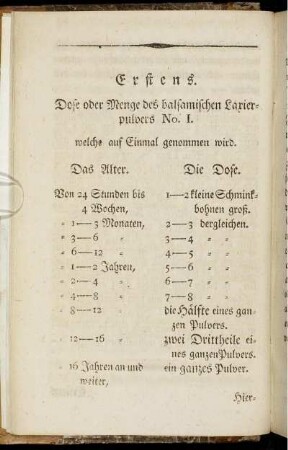 Erstens.
Dose oder Menge des balsamischen Laxier-
pulvers No. I.
welche auf Einmal genommen wird.
Das Alter. Die Dose.
Von 24 Stunden bis 1—2 kleine Schmink-
4 Wochen, bohnen groß.
" 1—3 Monaten, 2—3 dergleichen.
" 3—6 " 3—4 " "
" 6—12 " 4—5 " "
" 1—2 Jahren, 5—6 " "
" 2—4 " 6—7 " "
" 4—8 " 7—8 " "
" 8—12 " die Hälfte eines gan-
zen Pulvers.
" 12—16 " zwei Drittheile ei-
nes ganzen Pulvers.
" 16 Jahren an und ein ganzes Pulver.
weiter,
Hier-